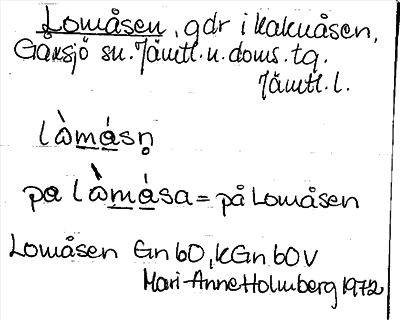 Lomåsen, gdr i Kakuåsen,
Gåxsjö sn. Jämtl. n. doms. tg.
Jämtl. l.
lὼmásn̥
pa lὼmása = på Lomåsen
Lomåsen Gnb0, KGnb0V
Mari-Anne Holmberg 1972